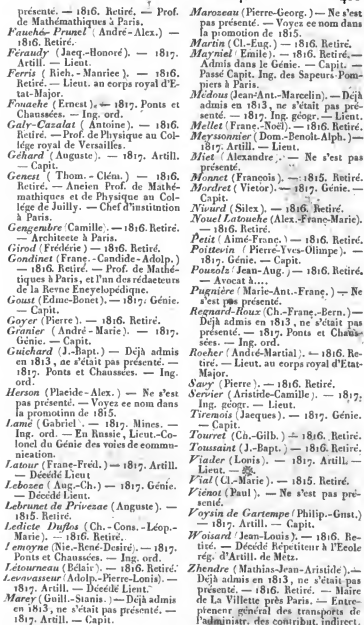 présenté. — 1816. Retiré. — Prof.
de Mathématiques à Paris.
Fauché-Prunel (André-Alex.) —
1816. Retiré.
Féraudy (Jacq.-Honoré). — 1817.
Artill. — Lieut.
Ferris (Rich.-Maurice). — 1816.
Retiré. — Lieut. au corps royal d'E-
tat-Major.
Fouache (Ernest). — 1817. Ponts et
Chaussées. — Ing. ord.
Galy-Cazalat (Antoine). — 1816.
Retiré. — Prof. de Physique au Col-
lége royal de Versailles.
Géhard (Auguste). — 1817. Artill.
— Capit.
Genest (Thom.-Clém.) — 1816.
Retiré. — Ancien Prof. de Mathé-
matiques et de Physique au Col-
lége de Juilly. — Chef d'institution
à Paris.
Gengembre (Camille). — 1816. Retiré.
— Architecte à Paris.
Girod (Frédéric) — 1816. Retiré.
Gondinet (Franç.-Candide-Adolp.)
— 1816. Retiré. — Prof. de Mathé-
tiques à Paris, et l'un des rédacteurs
de la Revue Encyclopédique.
Goust (Edme-Bonet). — 1817. Génie.
— Capit.
Goyer (Pierre). — 1816. Retiré.
Granier (André-Marie). — 1817.
Génie. — Capit.
Guichard (J.-Bapt.) — Déjà admis
en 1813, ne s'était pas présenté. —
1817. Ponts et Chaussées. — Ing.
ord.
Herson (Placide-Alex.) — Ne s'est
pas présenté. — Voyez ce nom dans
la promotion de 1815.
Lamé (Gabriel). — 1817. Mines. —
Ing. ord. — En Russie, Lieut.-Co-
lonel du Génie des voies de commu-
nication.
Latour (Franc-Fréd.) — 1817. Artill.
— Décédé Lieut
Lebozec (Aug.-Ch.) — 1817. Génie.
— Décédé Lieut.
Lebrunet de Privezac (Auguste). —
1815. Retiré.
Ledicte Duflos (Ch.-Cons.-Léop.-
Marie). — 1816. Retiré.
Lemoyne (Nic.-René-Desiré). — 1817.
Ponts et Chaussées. — Ing. ord.
Létourneau (Bélair). — 1816. Retiré.
Levavasseur (Adolp.-Pierre-Louis). —
1817. Artill. — Décédé Lieut.
Marey (Guill.-Stanis.) — Déjà admis
en 1813, ne s'était pas présenté. —
1817. Artill. — Capit.
Marozeau (Pierre-Georg.) — Ne s'est
pas présenté. — Voyez ce nom dans
la promotion de 1815.
Martin (Cl.-Eug.) — 1816. Retiré.
Mayniel (Emile). — 1816. Retiré. —
Admis dans le Génie. — Capit. —
Passé Capit. Ing. des Sapeurs-Pom-
piers à Paris.
Médoux (Jean-Ant.-Marcelin). — Déjà
admis en 1813, ne s'était pas pré-
senté. — 1817. Ing. géogr. — Lieut.
Mellet (Franc.-Noël). — 1816. Retiré.
Meyssonnier (Dom.-Benoit-Alph.) —
1817. Artill. — Lieut.
Miet (Alexandre). — Ne s'est pas
présenté.
Monnet (François). — 1815. Retiré.
Mordret (Victor). — 1817. Génie. —
Capit.
Nivard (Silex). — 1816. Retiré.
Nouel Latouche (Alex.-Franc-Marie).
— 1816. Retiré.
Petit (Aimé-Franç.) — 1816. Retiré.
Poittevin (Pierre-Yves-Olimpe). —
1817. Génie. — Capit.
Pouzols (Jean-Aug.) — 1816. Retiré.
— Avocat à....
Pugnière (Marie-Ant.-Franc.) — Ne
s'est pas présenté.
Regnard-Roux (Ch.-Franc.-Bern.) —
Déjà admis en 1813, ne s'était pas
présenté. — 1817. Ponts et Chaus-
sées. — Ing. ord.
Rocher (André-Martial). — 1816. Re-
tiré. — Lieut. au corps royal d'Etat-
Major.
Savy (Pierre). — 1816. Retiré.
Servier (Aristide-Camille). — 1817.
Ing. géogr. — Lieut.
Tirenois (Jacques). — 1817. Génie.
— Capit.
Tourret (Ch.-Gilb.) — 1816. Retiré.
Toussaint (J.-Bapt.) — 1816. Retiré.
Viader (Louis). — 1817. Artill. —
Lieut. —
Vial (Cl.-Marie). — 1815. Retiré.
Viénot (Paul). — Ne s'est pas pré-
senté.
Voysin de Gartempe (Philip-Gust.)
— 1817. Artill. — Capit.
Woisard (Jean-Louis). — 1816. Re-
tiré. — Décédé Répétiteur à l'Ecole
rég. d'Artill. de Metz.
Zhendre (Mathias-Jean-Aristide). —
Déjà admis en 1813, ne s'était pas
présenté. — 1816. Retiré. — Maire
de La Villette près Paris. — Entre-
preneur général des transports de
l'administr. des contribut. indirect.